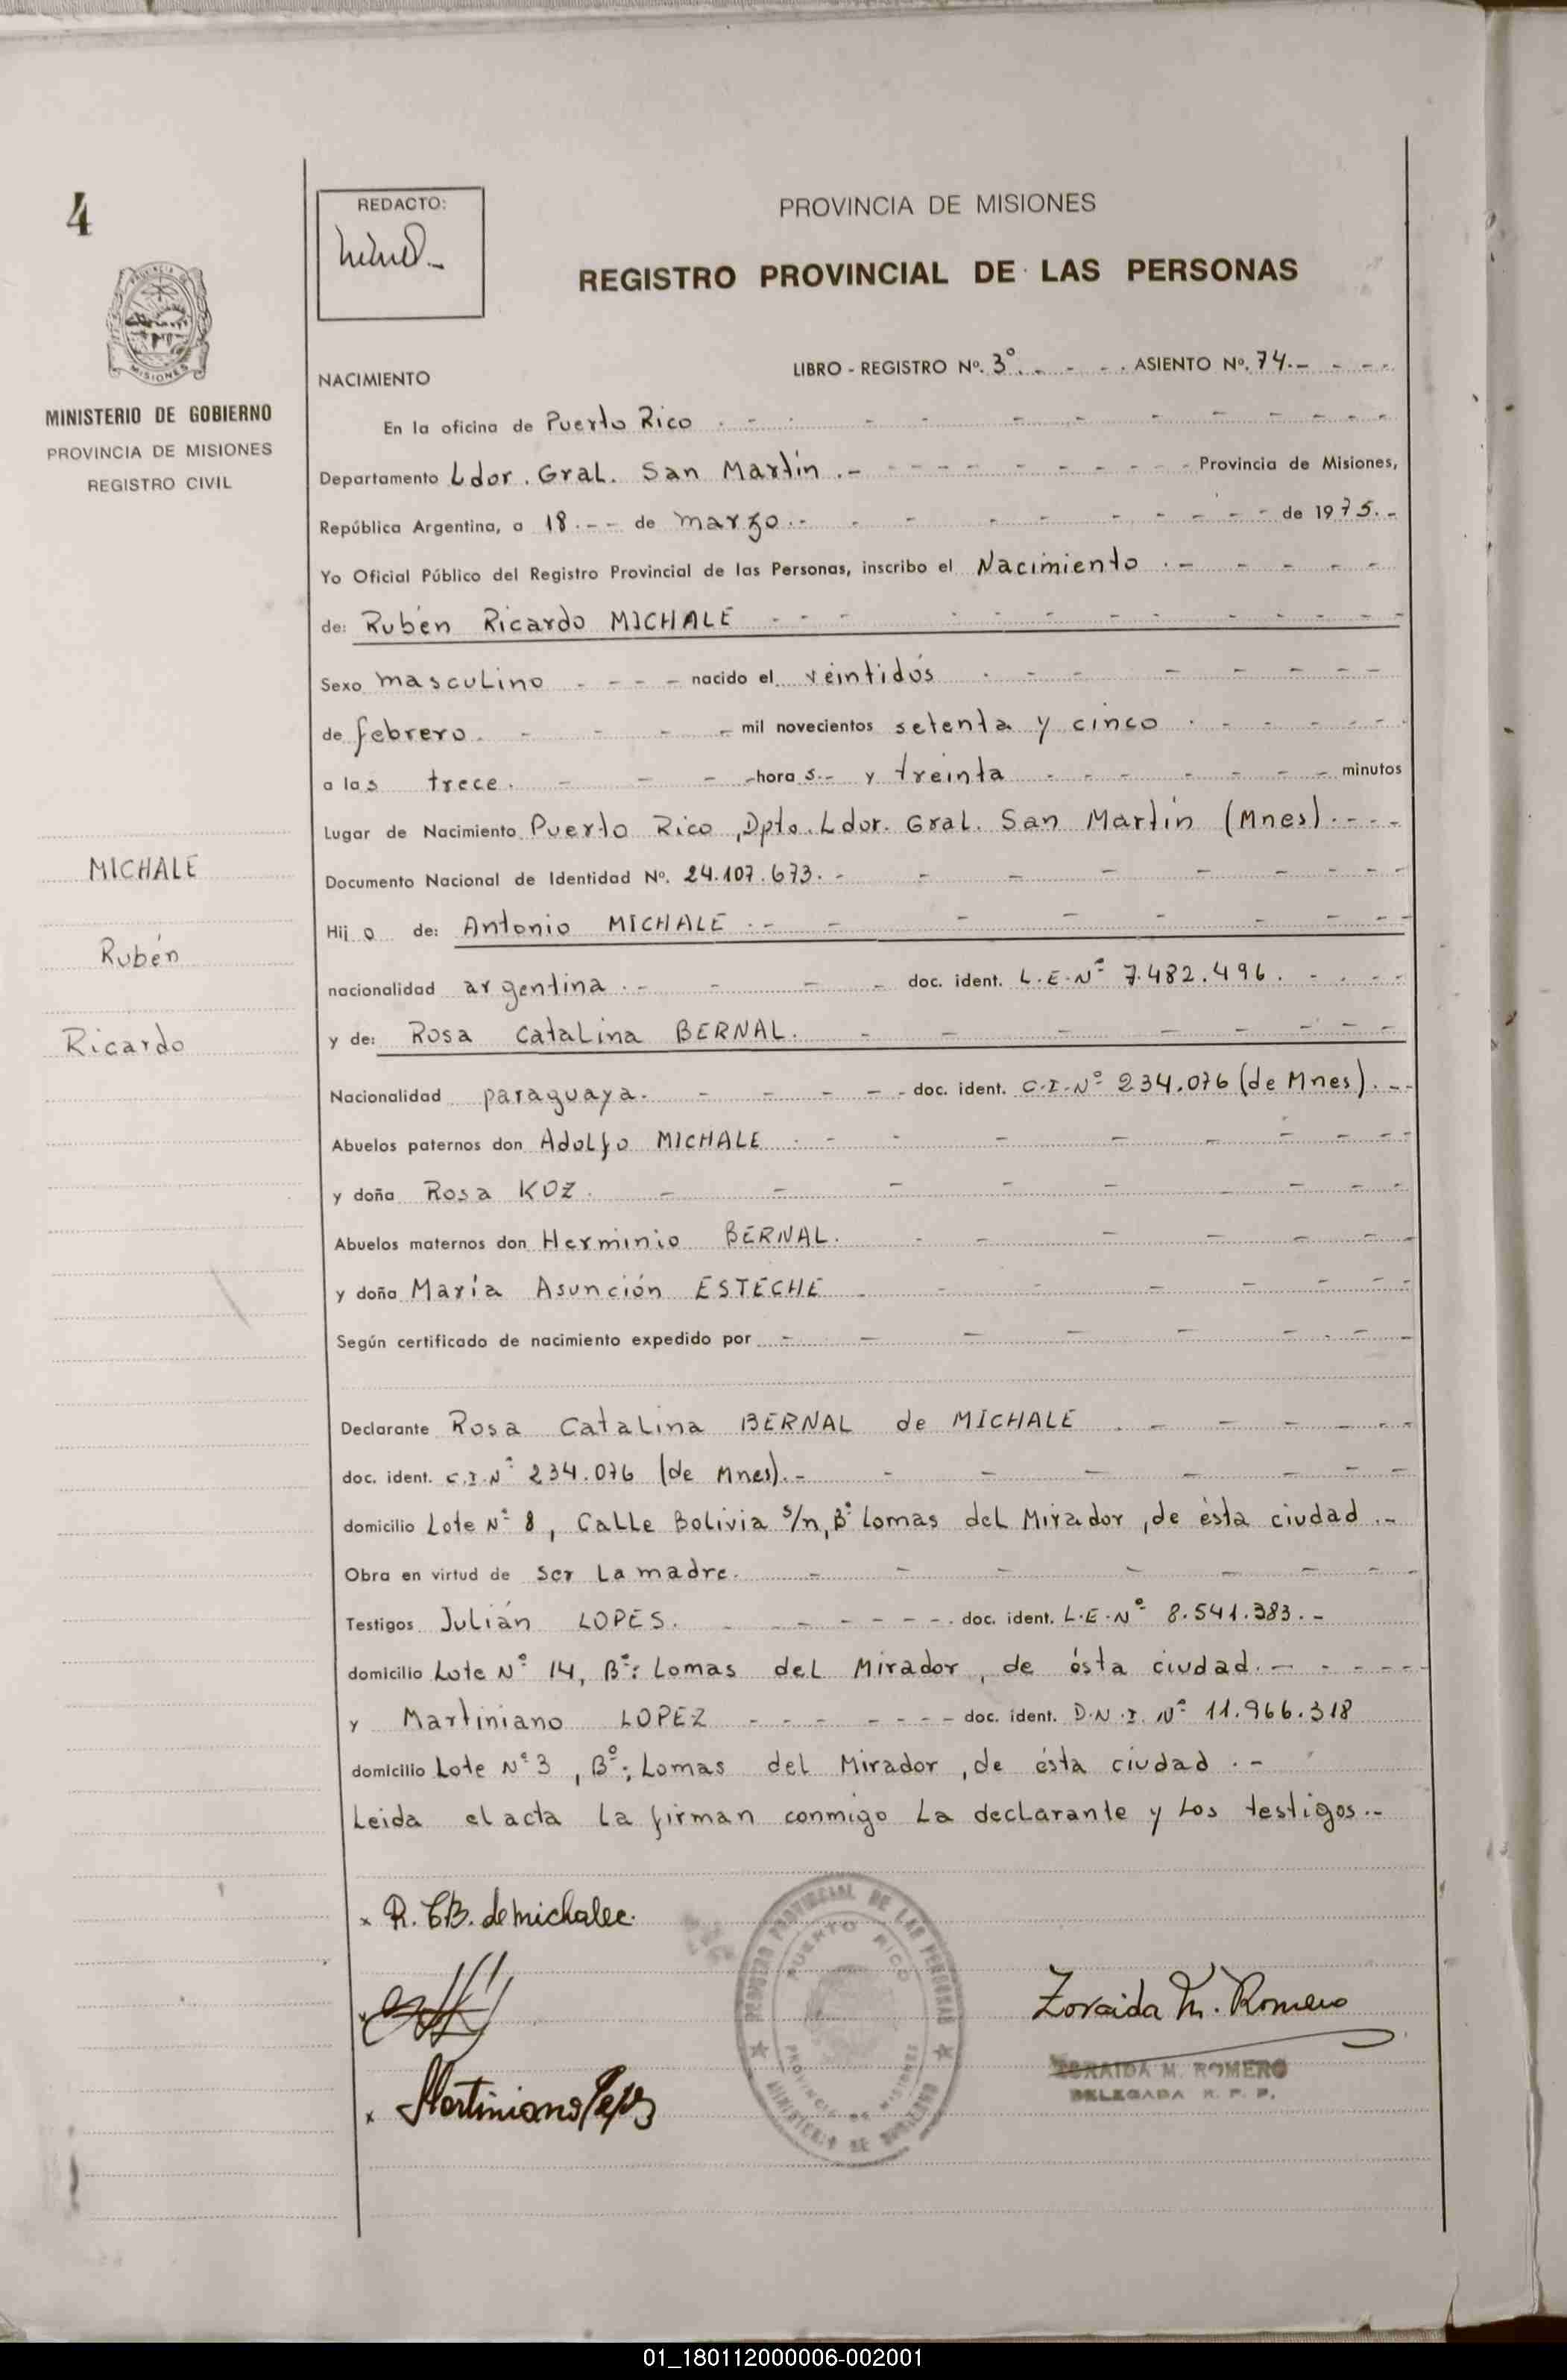 4
MINISTERIO DE GOBIERNO
PROVINCIA DE MISIONES
REGISTRO CIVIL
MICHALE
Rubén
Ricardo
REDACTO:
PROVINCIA DE MISIONES
REGISTRO PROVINCIAL DE LAS PERSONAS
NACIMIENTO
LIBRO - REGISTRO Nº. 3º. - - - . ASIENTO Nº. 74.- - - -
En la oficina de Puerto Rico
Departamento Ldor. Gral. San Martín .- Provincia de Misiones,
República Argentina, a 18.-- de marzo.- de 1975.-
Yo Oficial Público del Registro Provincial de las Personas, inscribo el Nacimiento .-
de: Rubén Ricardo MICHALE
Sexo masculino - - - - nacido el veintidós
de febrero. - mil novecientos setenta y cinco
a las trece. - hora s.- y treinta - minutos
Lugar de Nacimiento Puerto Rico, Dpto. Ldor. Gral. San Martín (Mnes).---
Documento Nacional de Identidad Nº. 24.107.673. -
Hij o de: Antonio MICHALE .-
nacionalidad argentina .- doc. ident. L.E.Nº 7.482.496.
y de: Rosa Catalina BERNAL.
Nacionalidad paraguaya. - doc. ident. C.I.Nº 234.076 (de Mnes).--
Abuelos paternos don Adolfo MICHALE
y doña Rosa KOZ.
Abuelos maternos don Herminio BERNAL.
y doña María Asunción ESTECHE
Según certificado de nacimiento expedido por
Declarante Rosa Catalina BERNAL de MICHALE
doc. ident. C.I.Nº 234.076 (de Mnes).-
domicilio Lote Nº 8, Calle Bolivia s/n, Bº Lomas del Mirador, de ésta ciudad.-
Obra en virtud de ser la madre.
Testigos Julián LOPES. - doc. ident. L.E.Nº 8.541.383.-
domicilio Lote Nº 14, Bº: Lomas del Mirador, de ésta ciudad.-
y Martiniano LOPEZ - doc. ident. D.N.I. Nº 11.966.318
domicilio Lote Nº 3, Bº: Lomas del Mirador, de ésta ciudad.-
Leida el acta la firman conmigo la declarante y los testigos.-
x R. C B. de michalec.
x Martiniano Lopez
REGISTRO PROVINCIAL DE LAS PERSONAS
PUERTO RICO
PROVINCIA DE MISIONES
MINISTERIO DE GOBIERNO
Zoraida M. Romero
ZORAIDA M. ROMERO
DELEGADA R. P. P.
01_180112000006-002001